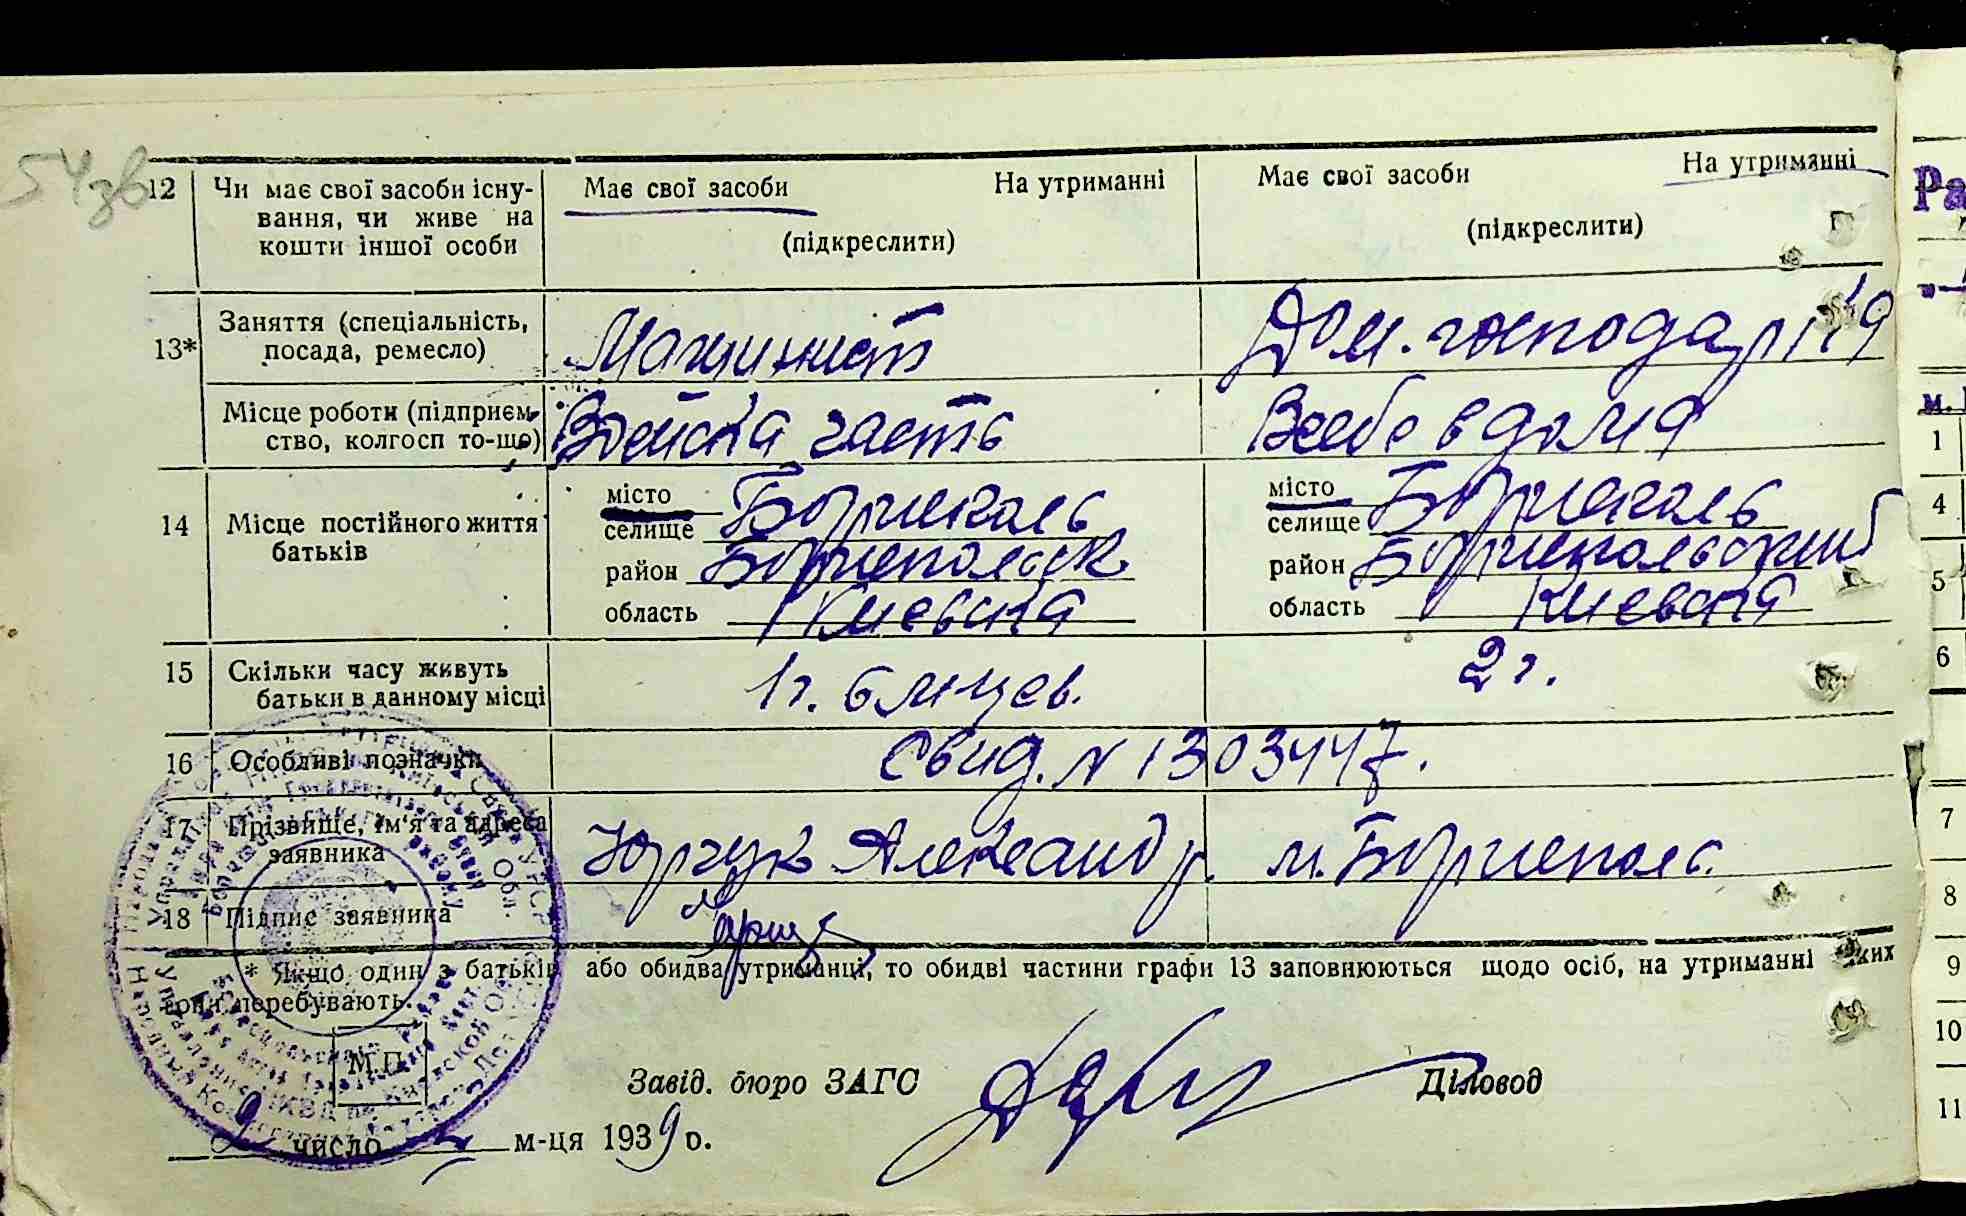 54зв
12 Чи має свої засоби існу- Має свої засоби На утриманні Має свої засоби На утриманні
вання, чи живе на
кошти іншої особи (підкреслити) (підкреслити)
Заняття (спеціальність, Машинист Дом. господар
13* посада, ремесло)
Місце роботи (підприєм- Войска часть В себе в дома
ство, колгосп то-що)
місто Бориспаль місто Бориспаль
14 Місце постійного життя селище селище
батьків район Бориспольск район Бориспольский
область Киевска область Киевска
15 Скільки часу живуть 1 г. 6 мицев. 2 г.
батьки в данному місці
16 Особливі позначки Свид. N 1303447.
17 Прізвище, ім'я та адреса Юрчук Александр. м. Бориспаль.
заявника
18 Підпис заявника
* Якщо один з батьків або обидва утриманці, то обидві частини графи 13 заповнюються щодо осіб, на утриманні яких
вони перебувають.
М.П.
Завід. бюро ЗАГС Діловод
9 число м-ця 1939 р.
Ра
м.
1
4
5
6
7
8
9
10
11